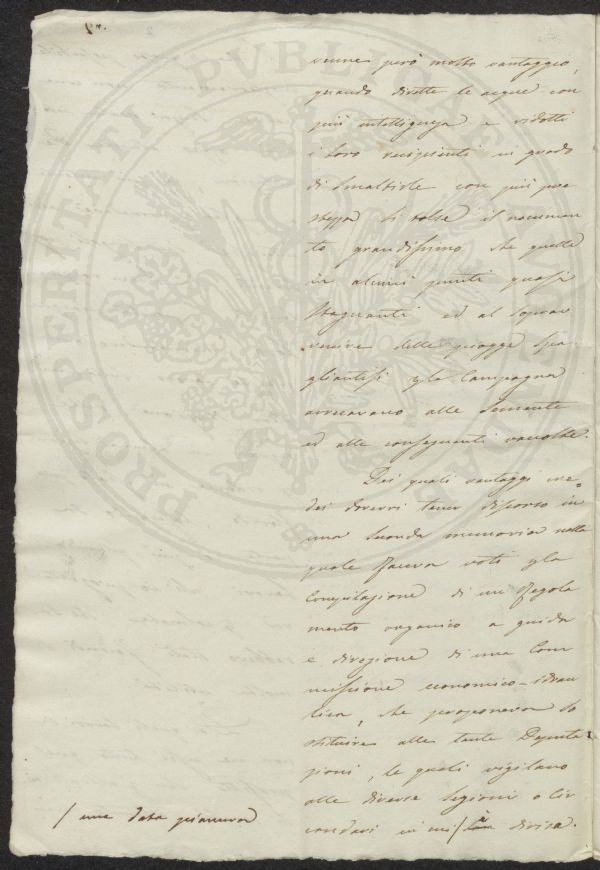 venne però molto vantaggio,
quando dirette le acque con
più intelligenza e ridotti
i loro recipienti in grado
di smaltirle con più pre
stezza si tolse il nocumen
to grandissimo che quelle
in alcuni punti quasi
stagnanti ed al soprav
venire delle piogge spa
gliantisi p la Campagna
arrecavano alle semente
ed alle conseguenti raccolte.
Dei quali vantaggi cre=
dei dovervi tener discorso in
una seconda memoria nella
quale faceva voti p la
Compilazione di un Regola
mento organico a guida
e direzione di una Com
missione economico-idrau
lica, che proponeva so
stituire alle tante Deputa
zioni, le quali vigilano
alle diverse legioni o Cir
condari in cui / è divisa.
/ una data pianura
PROSPERITATI PVBLICAE AVGENDAE